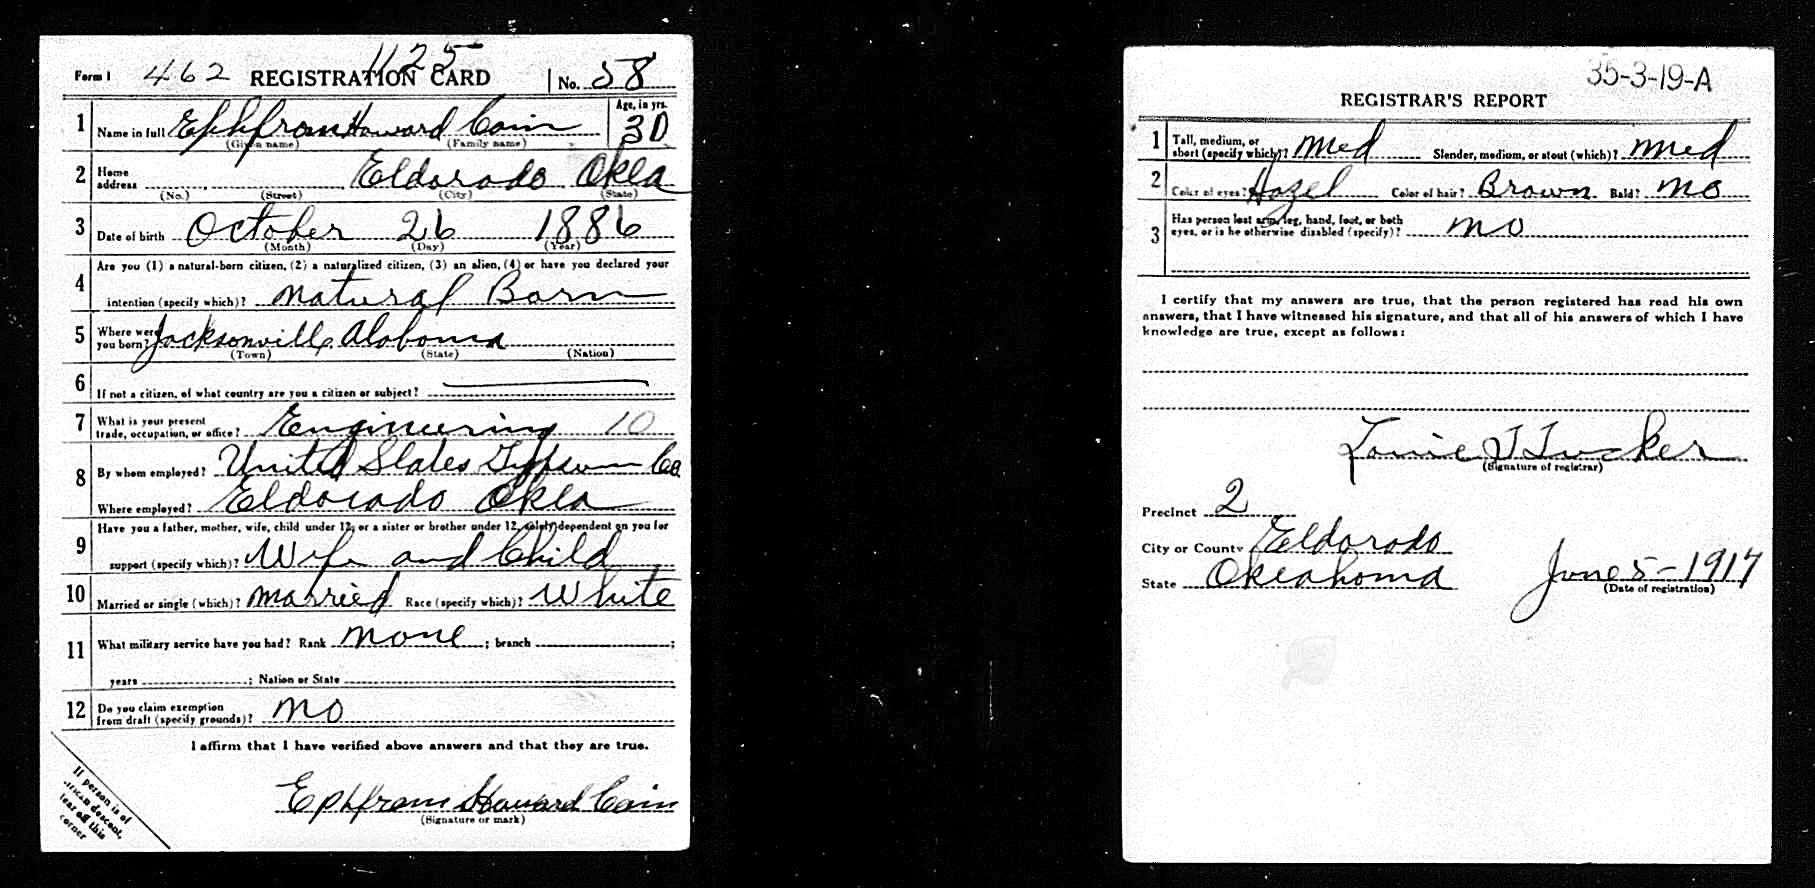 1125
Form 1 462 REGISTRATION CARD No. 58
1 Name in full Ephfrom Howard Cain Age, in yrs. 30
(Given name) (Family name)
2 Home address Eldorado Okla
(No.) (Street) (City) (State)
3 Date of birth October 26 1886
(Month) (Day) (Year)
4 Are you (1) a natural-born citizen, (2) a naturalized citizen, (3) an alien, (4) or have you declared your
intention (specify which)? Natural Born
5 Where were you born? Jacksonville Alabama
(Town) (State) (Nation)
6 If not a citizen, of what country are you a citizen or subject?
7 What is your present trade, occupation, or office? Engineering 10
8 By whom employed? United States Gypsum Co.
Where employed? Eldorado Okla
9 Have you a father, mother, wife, child under 12, or a sister or brother under 12, solely dependent on you for
support (specify which)? Wife and Child
10 Married or single (which)? Married Race (specify which)? White
11 What military service have you had? Rank None ; branch ;
years ; Nation or State
12 Do you claim exemption from draft (specify grounds)? No
I affirm that I have verified above answers and that they are true.
Ephfrom Howard Cain
(Signature or mark)
If person is of
African descent,
tear off this
corner
35-3-19-A
REGISTRAR'S REPORT
1 Tall, medium, or short (specify which)? Med Slender, medium, or stout (which)? Med
2 Color of eyes? Hazel Color of hair? Brown Bald? No
3 Has person lost arm, leg, hand, foot, or both
eyes, or is he otherwise disabled (specify)? No
I certify that my answers are true, that the person registered has read his own
answers, that I have witnessed his signature, and that all of his answers of which I have
knowledge are true, except as follows:
Louie T Tucker
(Signature of registrar)
Precinct 2
City or County Eldorado
State Oklahoma June 5-1917
(Date of registration)